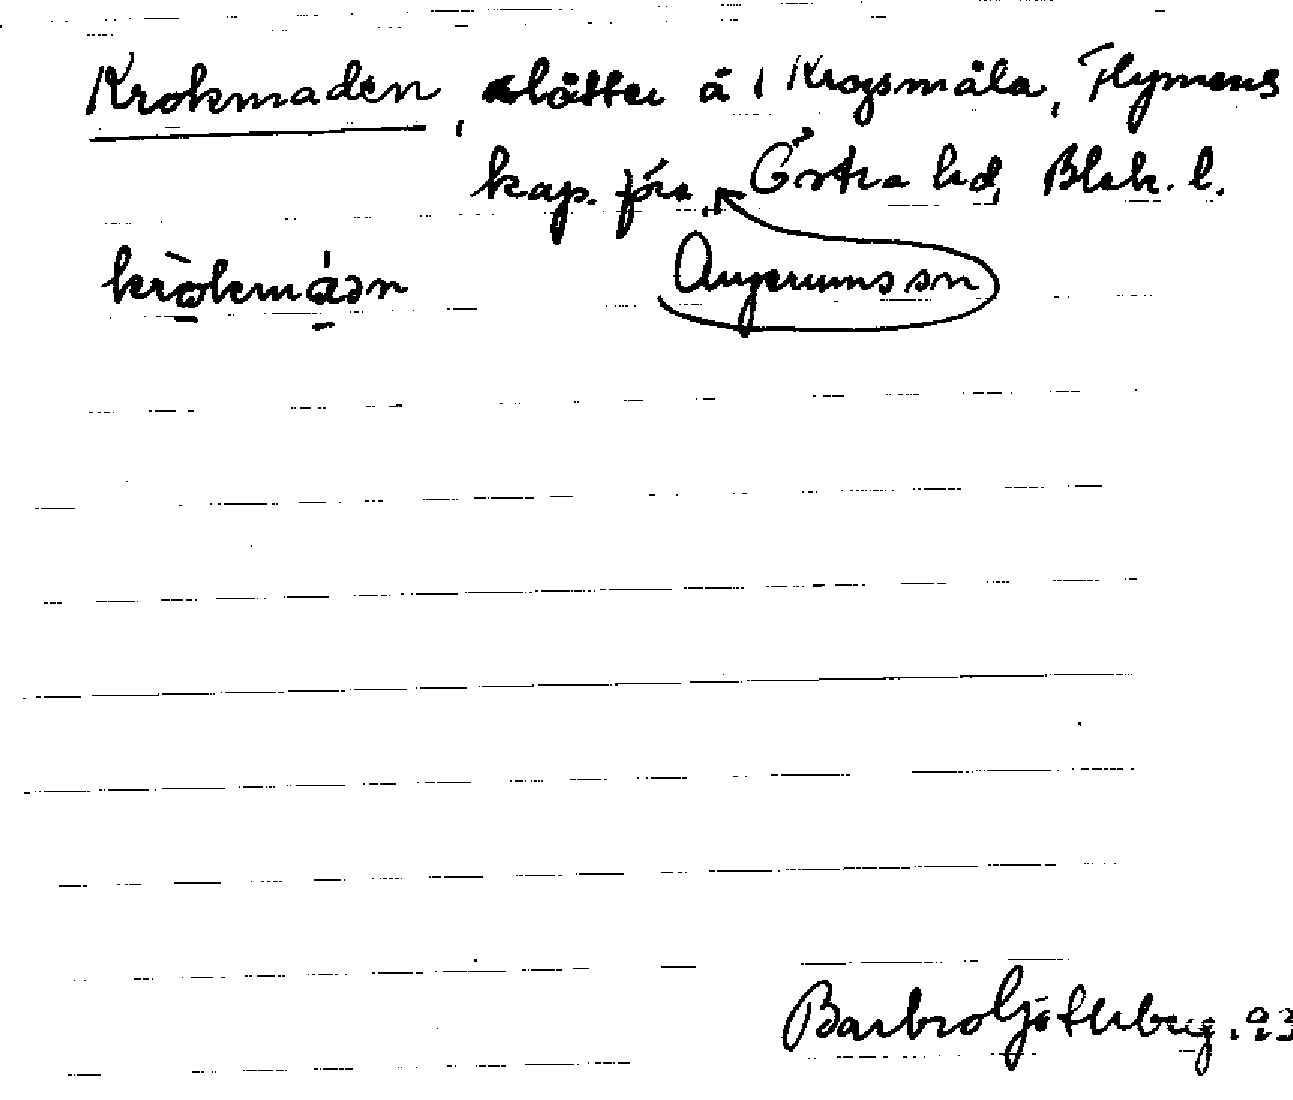 Krokmaden, slåtter å i Krogsmåla, Flymens
kap. förs. Östra hd, Blek. l.
kròkmáən Augerums sn
Barbro Götherberg. 93